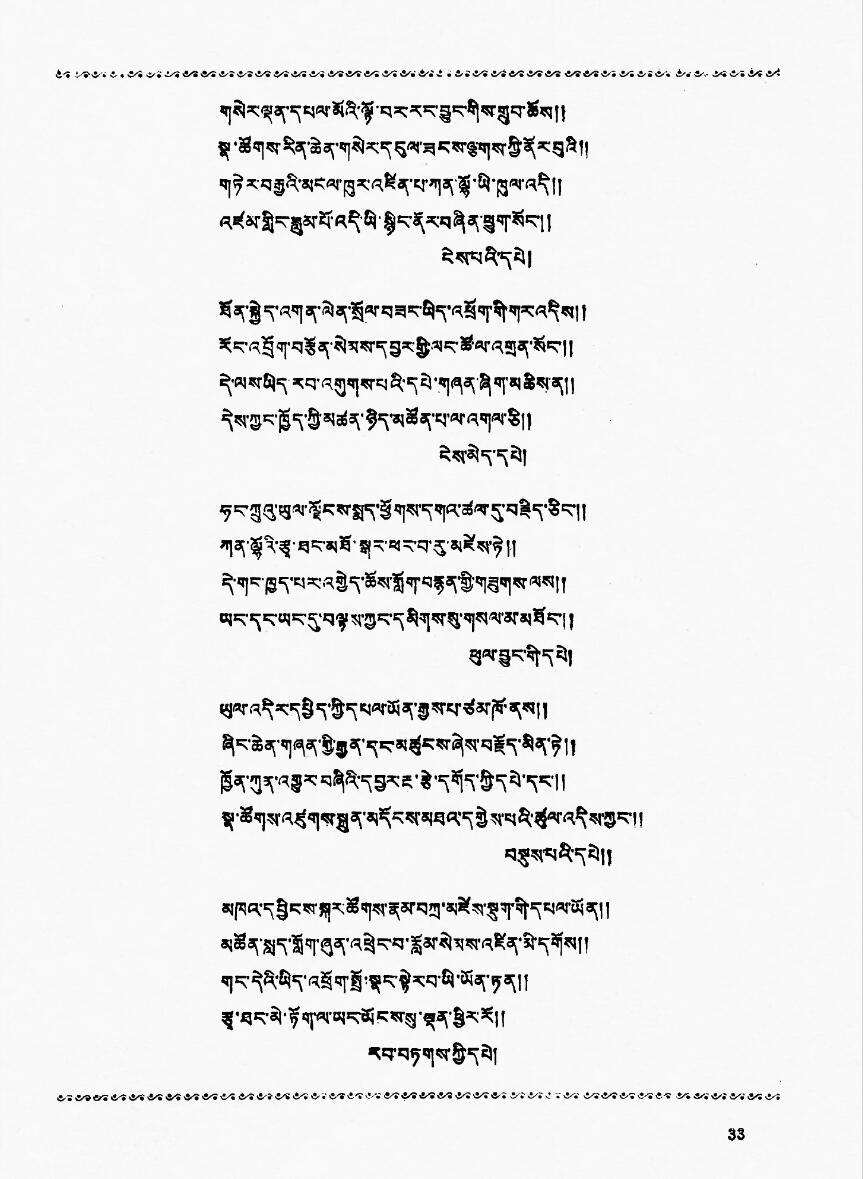 གསེར་ལྡན་དཔལ་མོའི་ལྟོ་བར་རང་བྱུང་གིས་གྲུབ་ཚོས།།
སྣ་ཚོགས་རིན་ཆེན་གསེར་དངུལ་ཟངས་ལྕགས་ཀྱི་ནོར་བུའི།།
གཏེར་བརྒྱའི་མངལ་ཁུར་འཛིན་པ་ཀན་ལྷོ་ཡི་ཁུལ་འདི།།
འཛམ་གླིང་རྒྱལ་པོ་འདི་ཡི་སྙིང་ནོར་བཞིན་ཕྱུག་སོང་།།
ངེས་པའི་དཔེ།
ཐོན་སྐྱེད་འགན་ལེན་སྲོལ་བཟང་ཡིད་འཕྲོག་གི་གར་འདིས།།
རོང་འབྲོག་བརྩོན་སེམས་དབྱར་གྱི་ལང་ཚོལ་འགྲན་སོང་།།
དེ་ལས་ཡིད་རབ་འགུགས་པའི་དཔེ་གཞན་ཞིག་མཆིས་ན།།
དེས་ཀྱང་ཁྱོད་ཀྱི་མཚན་ཉིད་མཚོན་པ་ལ་འགལ་ཅི།།
ངེས་མེད་དཔེ།
ཧང་ཀྲུའུ་ཡུལ་ལྗོངས་སྨད་ཕྱོགས་དགའ་ཚལ་དུ་བརྗིད་ཅིང་།།
ཀན་ལྷོའི་རྩྭ་ཐང་མཐོ་སྒང་ཕང་བ་རུ་མཛེས་ཏེ།།
དེ་གང་ཁྱད་པར་འགྱེད་ཆོས་གློག་བརྙན་གྱི་གཟུགས་ལས།།
ཡང་དང་ཡང་དུ་བལྟས་ཀྱང་དམིགས་སུ་གསལ་མ་མཐོང་།།
ཕུལ་བྱུང་གི་དཔེ།
ཡུལ་འདིར་དཔྱིད་ཀྱི་དཔལ་ཡོན་རྒྱས་པ་ཙམ་ཁོ་ནས།།
ཞིང་ཆེན་གཞན་གྱི་རྒྱན་དང་མཚུངས་ཞེས་བརྗོད་མིན་ཏེ།།
ཁྱོན་ཀུན་འགྱུར་བཞིའི་དབྱར་ར་རྩེ་དགོད་ཀྱི་དཔེ་དང་།།
སྣ་ཚོགས་འཛུགས་སྐྲུན་མདོངས་མཐའ་དགྱེས་པའི་ཚུལ་འདིས་ཀྱང་།།
བསྡུས་པའི་དཔེ།།
མཁའ་དབྱིངས་སྐར་ཚོགས་རྣམ་བཀྲ་མཛེས་སྡུག་གི་དཔལ་ཡོན།།
མཚོན་སླད་གློག་ཞུན་འཕྲེང་བ་རློམ་སེམས་འཛིན་མི་དགོས།།
གང་དེའི་ཡིད་འཕྲོག་སྤྲོ་སྣང་སྟེར་བ་ཡི་ཡོན་ཏན།།
རྩྭ་ཐང་མེ་ཏོག་ལ་ཡང་ཡོངས་སུ་ལྡན་ཕྱིར་རོ།།
རབ་བཏགས་ཀྱི་དཔེ།
༣༣